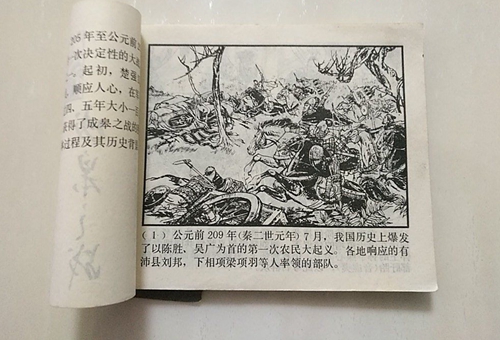 205年至公元前
一次决定性的大
。起初，楚强
，顺应人心，在
四、五年大小一
获得了成皋之战的
过程及其历史背
之战
(1)公元前209年(秦二世元年)7月，我国历史上爆发
了以陈胜、吴广为首的第一次农民大起义。各地响应的有
沛县刘邦，下相项梁项羽等人率领的部队。